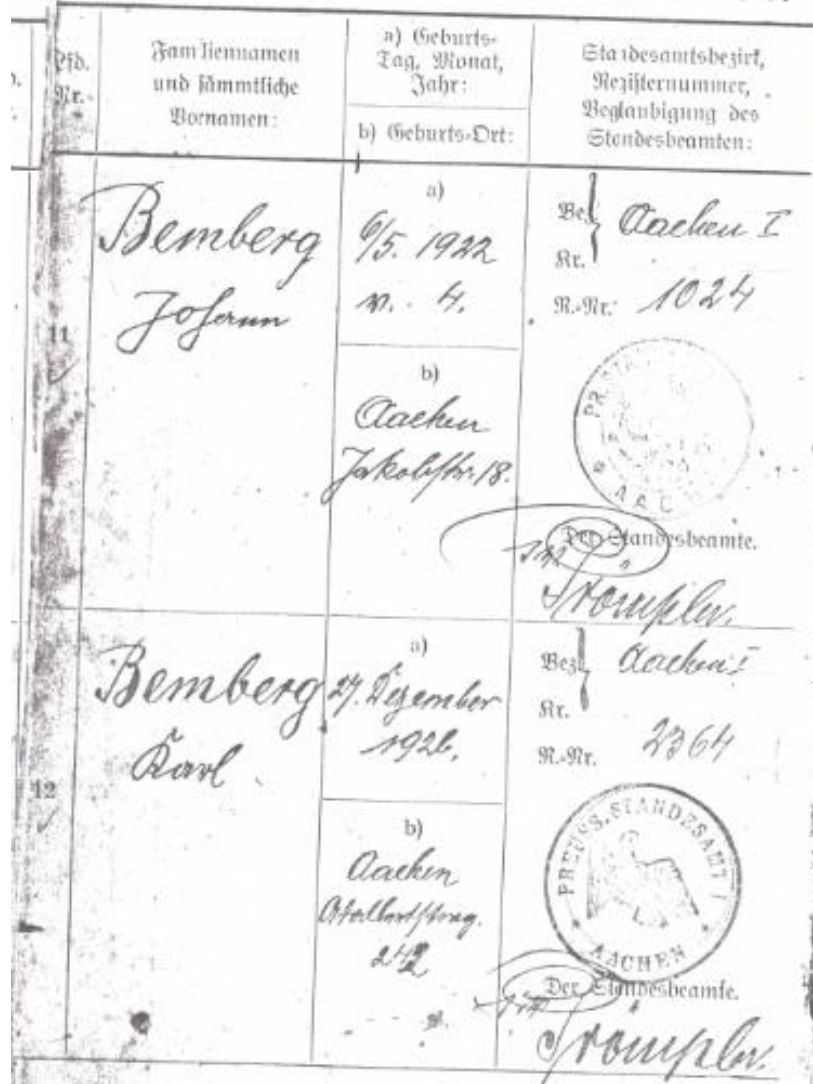 Lfd.
Nr.
Familiennamen
und sämmtliche
Vornamen:
a) Geburts-
Tag, Monat,
Jahr:
b) Geburts-Ort:
Standesamtsbezirk,
Registernummer,
Beglaubigung des
Standesbeamten:
11
Bemberg
Johann
a)
6/5. 1922
b)
Aachen
Jakobstr. 18.
Bez. Aachen I
Kr.
R.-Nr. 1024
PR.
AAC
Der Standesbeamte.
12
Bemberg
Karl
a)
27. Dezember
1926.
b)
Aachen
242
Bez. Aachen I
Kr.
R.-Nr. 2364
PREUSS. STANDESAMT I
AACHEN
Der Standesbeamte.